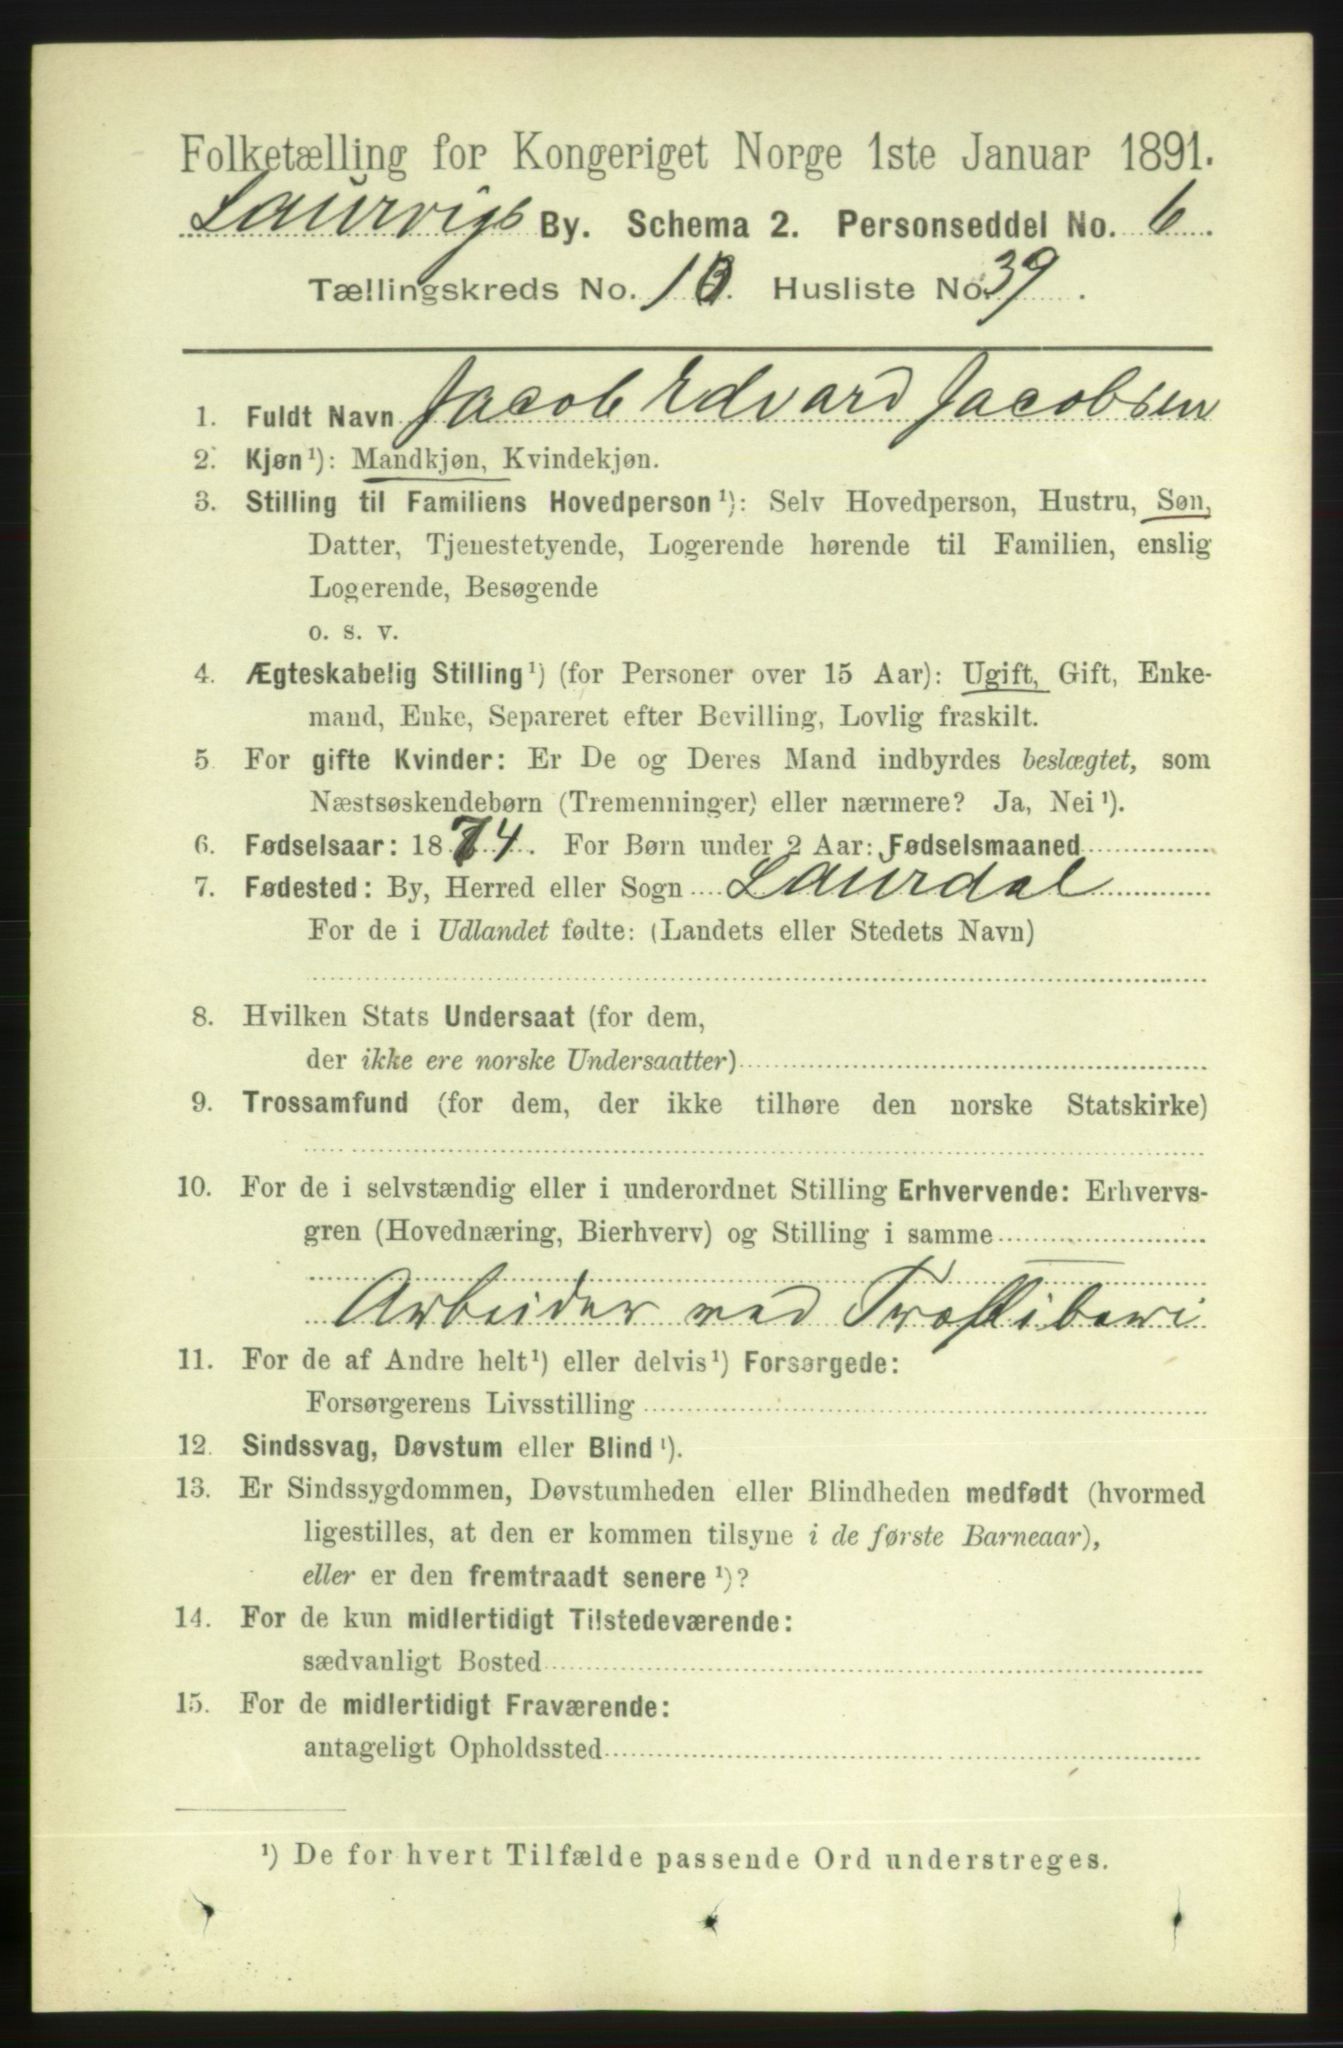 Folketælling for Kongeriget Norge 1ste Januar 1891.
Laurvigs By. Schema 2. Personseddel No. 6.
Tællingskreds No. 10. Husliste No. 39.
1. Fuldt Navn Jacob Edvard Jacobsen
2. Kjøn ¹): Mandkjøn, Kvindekjøn.
3. Stilling til Familiens Hovedperson ¹): Selv Hovedperson, Hustru, Søn,
Datter, Tjenestetyende, Logerende hørende til Familien, enslig
Logerende, Besøgende
o. s. v.
4. Ægteskabelig Stilling ¹) (for Personer over 15 Aar): Ugift, Gift, Enke-
mand, Enke, Separeret efter Bevilling, Lovlig fraskilt.
5. For gifte Kvinder: Er De og Deres Mand indbyrdes beslægtet, som
Næstsøskendebørn (Tremenninger) eller nærmere? Ja, Nei ¹).
6. Fødselsaar: 1874. For Børn under 2 Aar: Fødselsmaaned
7. Fødested: By, Herred eller Sogn Laurdal
For de i Udlandet fødte: (Landets eller Stedets Navn)
8. Hvilken Stats Undersaat (for dem,
der ikke ere norske Undersaatter)
9. Trossamfund (for dem, der ikke tilhøre den norske Statskirke)
10. For de i selvstændig eller i underordnet Stilling Erhvervende: Erhvervs-
gren (Hovednæring, Bierhverv) og Stilling i samme
Arbeider ved
11. For de af Andre helt ¹) eller delvis ¹) Forsørgede:
Forsørgerens Livsstilling
12. Sindssvag, Døvstum eller Blind ¹).
13. Er Sindssygdommen, Døvstumheden eller Blindheden medfødt (hvormed
ligestilles, at den er kommen tilsyne i de første Barneaar),
eller er den fremtraadt senere ¹)?
14. For de kun midlertidigt Tilstedeværende:
sædvanligt Bosted
15. For de midlertidigt Fraværende:
antageligt Opholdssted
¹) De for hvert Tilfælde passende Ord understreges.